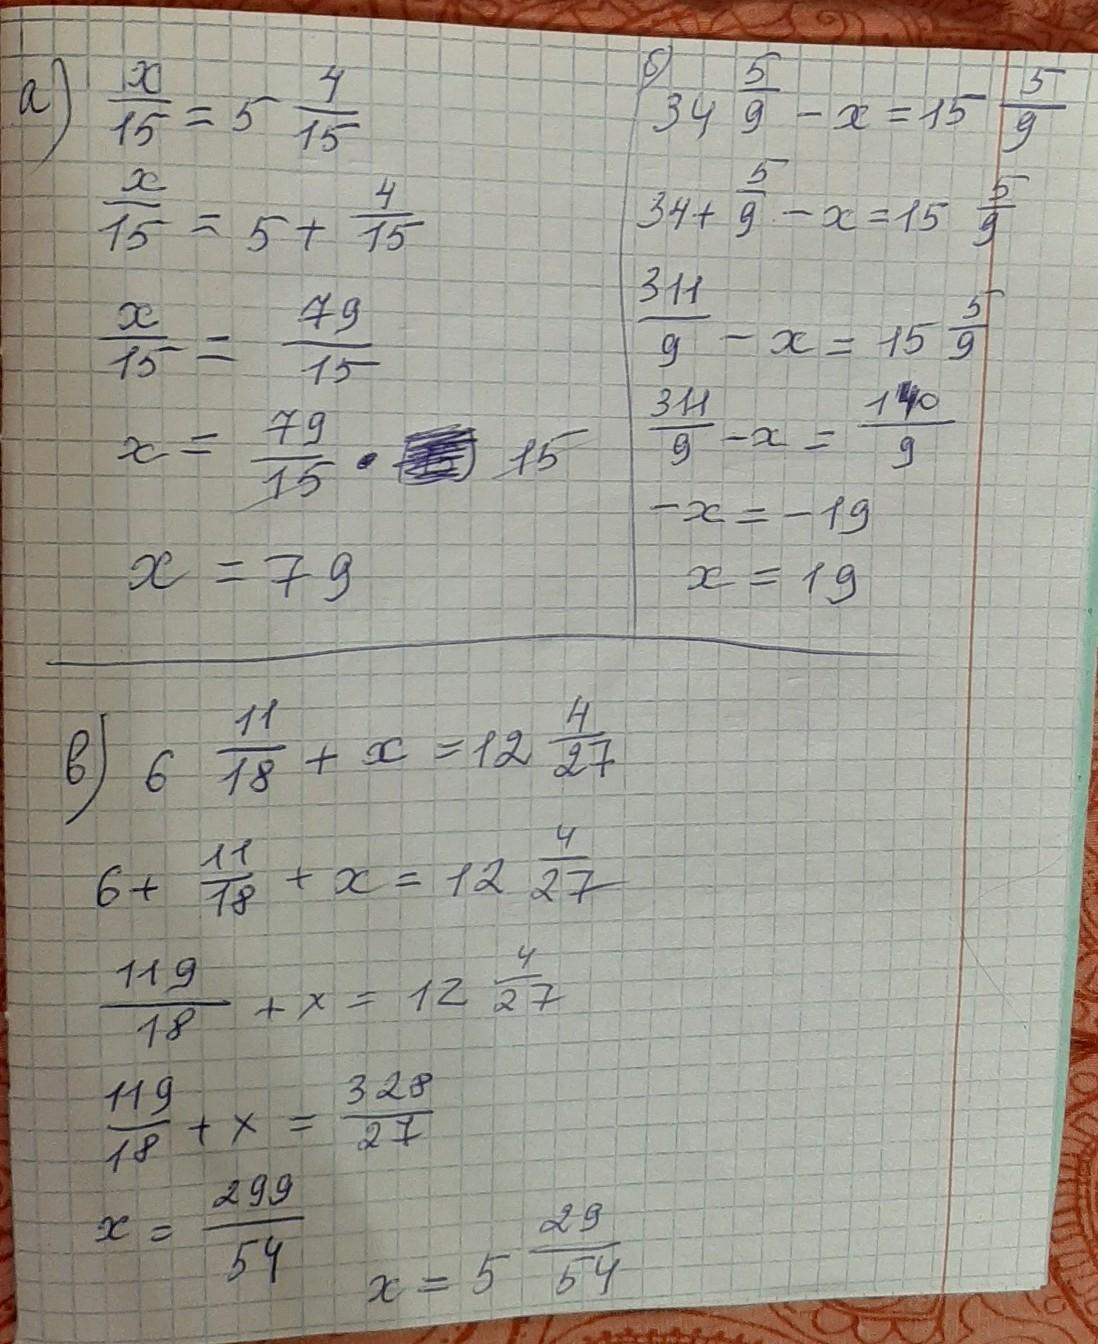 а) x/15 = 5 4/15
x/15 = 5 + 4/15
x/15 = 79/15
x = 79/15 · 15
x = 79
б) 34 5/9 - x = 15 5/9
34 + 5/9 - x = 15 5/9
311/9 - x = 15 5/9
311/9 - x = 140/9
-x = -19
x = 19
в) 6 11/18 + x = 12 4/27
6 + 11/18 + x = 12 4/27
119/18 + x = 12 4/27
119/18 + x = 328/27
x = 299/54
x = 5 29/54